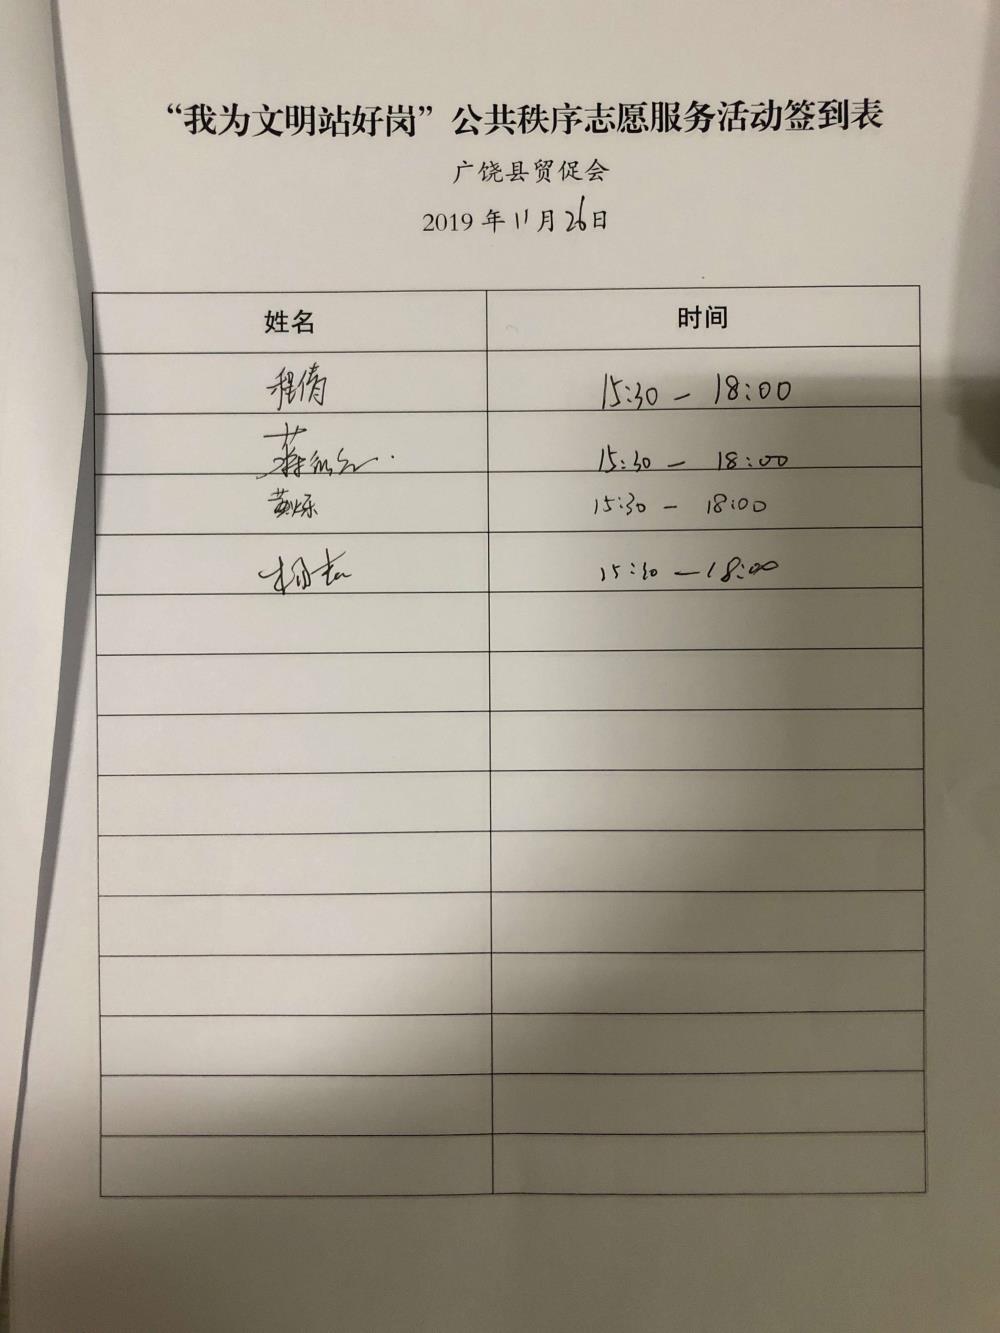 “我为文明站好岗”公共秩序志愿服务活动签到表
广饶县贸促会
2019年11月26日
姓名 时间
程倩 15:30 — 18:00
15:30 — 18:00
15:30 — 18:00
15:30 — 18:00